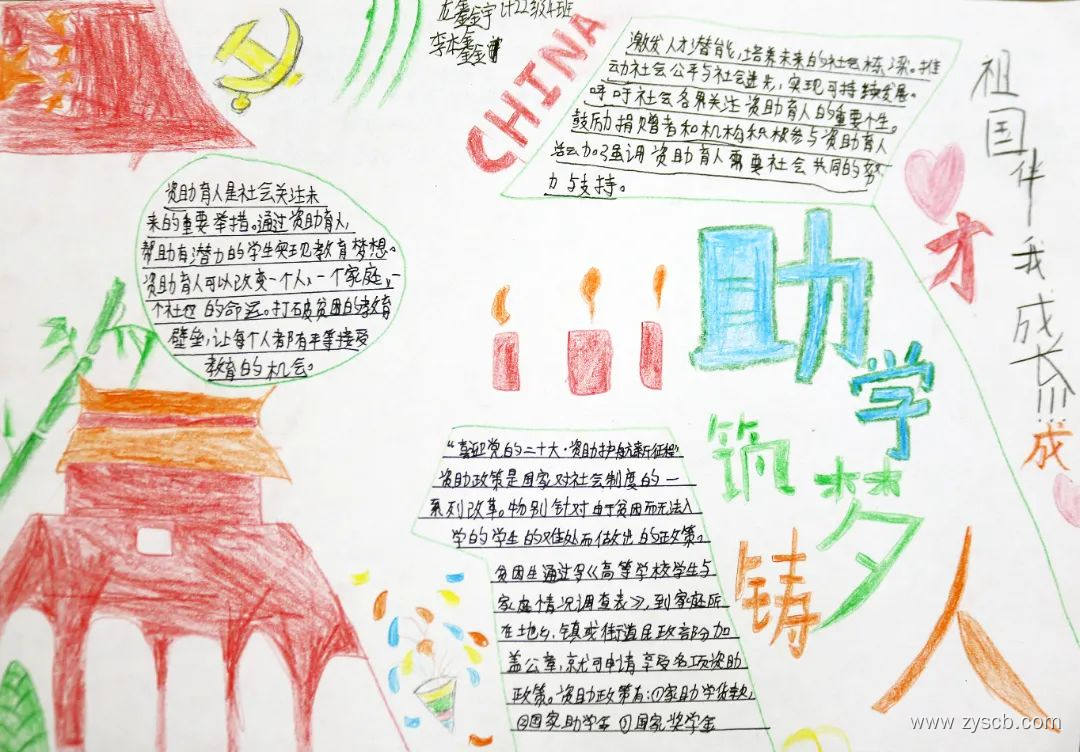 龙鑫宇 计22级4班
李本鑫
CHINA
激发人才潜能,培养未来的社会栋梁。推
动社会公平与社会进先,实现可持续发展。
呼吁社会各界关注资助育人的重要个生。
鼓励捐赠者和机构积极参与资助育人
活动。强调资助育人需要社会共同的努
力与支持。
祖国伴我成长!!!
资助育人是社会关注未
来的重要举措。通过资助育人,
帮助有潜力的学生实现教育梦想。
资助育人可以改变一个人,一个家庭,一
个社区的命运。打破贫困的教育
壁垒,让每个人都有平等接受
教育的机会。
助学
筑梦
铸人
成才
“喜迎党的二十大·资助护航新征程”
资助政策是国家对社会制度的一
系列改革。物别针对由于贫困而无法入
学的学生的难处而做出的政策。
贫困生通过写《高等学校学生与
家庭情况调查表》,到家庭所
在地乡,镇或街道民政部分加
盖公章,就可申请享受各项资助
政策。资助政策有:①家助学贷款,
②国家助学金 ①国家奖学金
www.zyscb.com